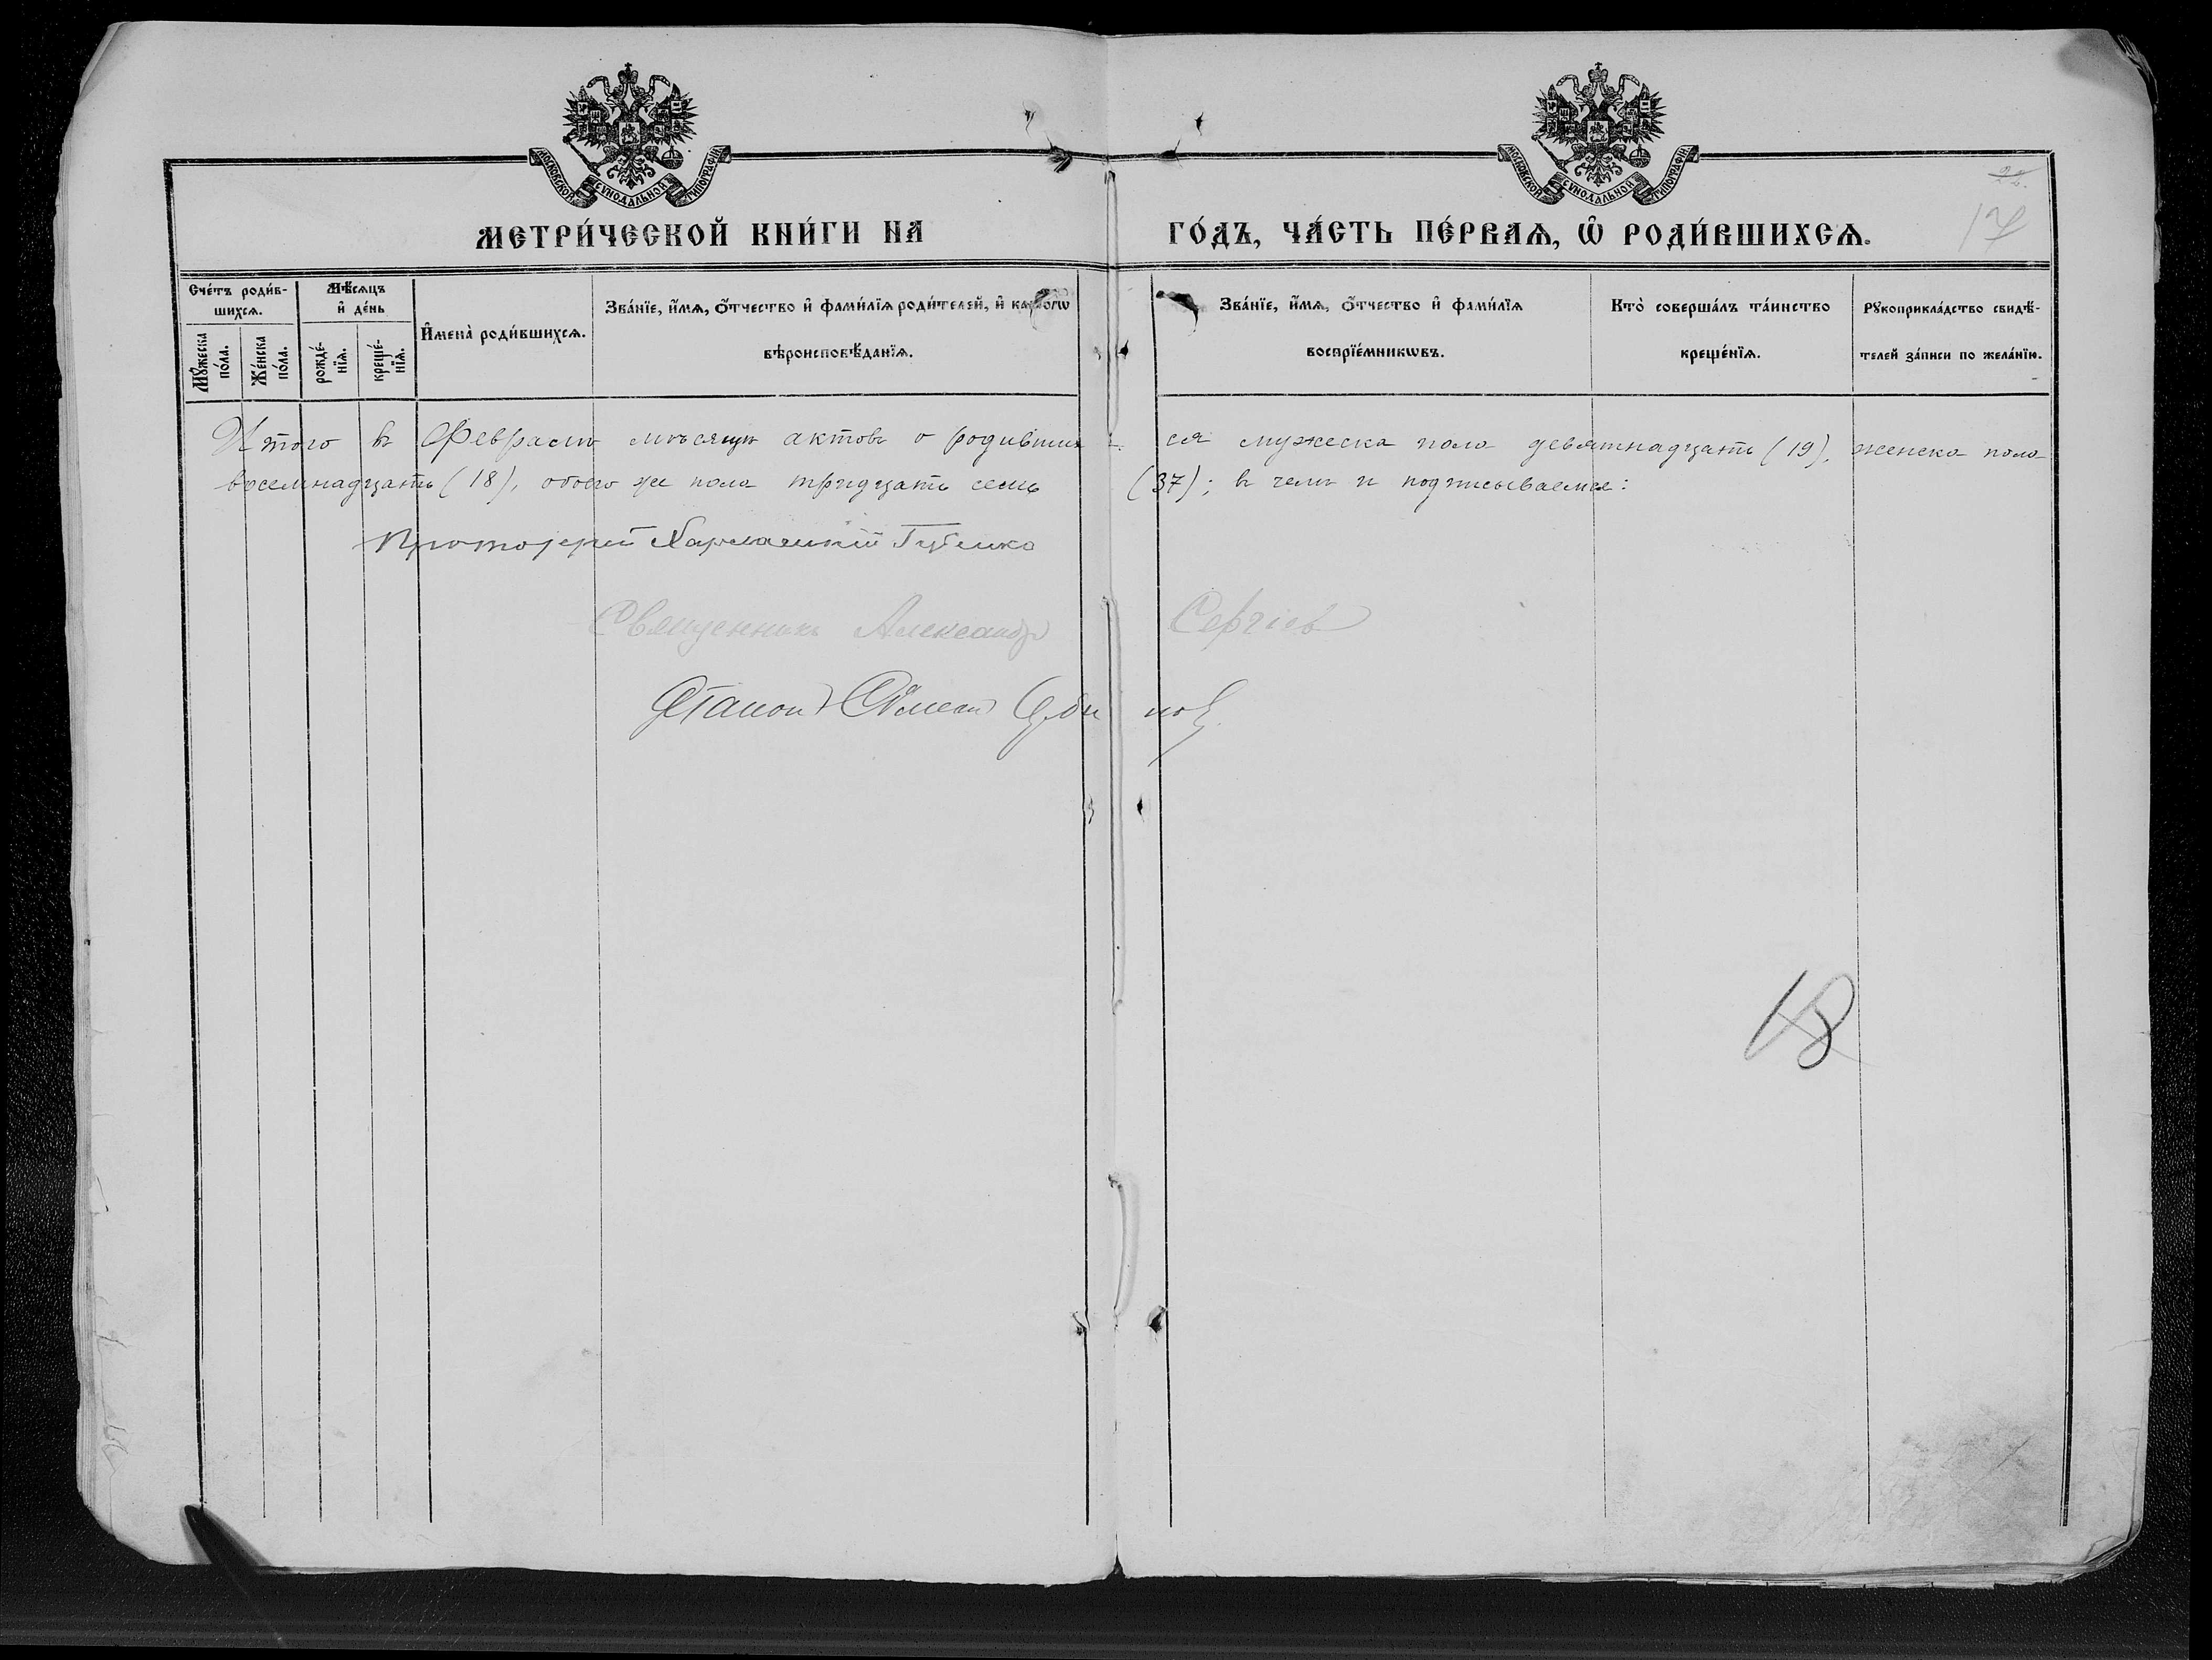 МОСКОВСКОЙ СѴНОДАЛЬНОЙ ТИПОГРАФІИ
МОСКОВСКОЙ СѴНОДАЛЬНОЙ ТИПОГРАФІИ
МЕТРИ́ЧЕСКОЙ КНИ́ГИ НА ГО́ДЪ, ЧА́СТЬ ПЕ́РВАѦ, Ѡ҆ РОДИ́ВШИХСѦ.
17
Сче́тъ роди́в-
шихсѧ.
Мꙋ́жеска по́ла.
Же́нска по́ла.
Мѣ́сѧцъ
и҆ де́нь
рожде́-
нїѧ.
креще́-
нїѧ.
И҆мена̀ роди́вшихсѧ.
Зва́нїе, и҆́мѧ, ѻ҆́тчество и҆ фами́лїѧ роди́телей, и҆
вѣроисповѣ́данїѧ.
Зва́нїе, и҆́мѧ, ѻ҆́тчество и҆ фами́лїѧ
воспрїе́мникѡвъ.
Кто̀ соверша́лъ та́инство
креще́нїѧ.
Рꙋкоприкла́дство свидѣ́-
телей за́писи по жела́нїю.
Итого въ Февралѣ мѣсяцѣ актовъ о родившихся мужеска пола девятнадцать (19), женска пола
восемнадцать (18), обоего же пола тридцать семь (37); въ чемъ и подписываемся:
Протоіерей
Священникъ Александръ Сергіевъ
18